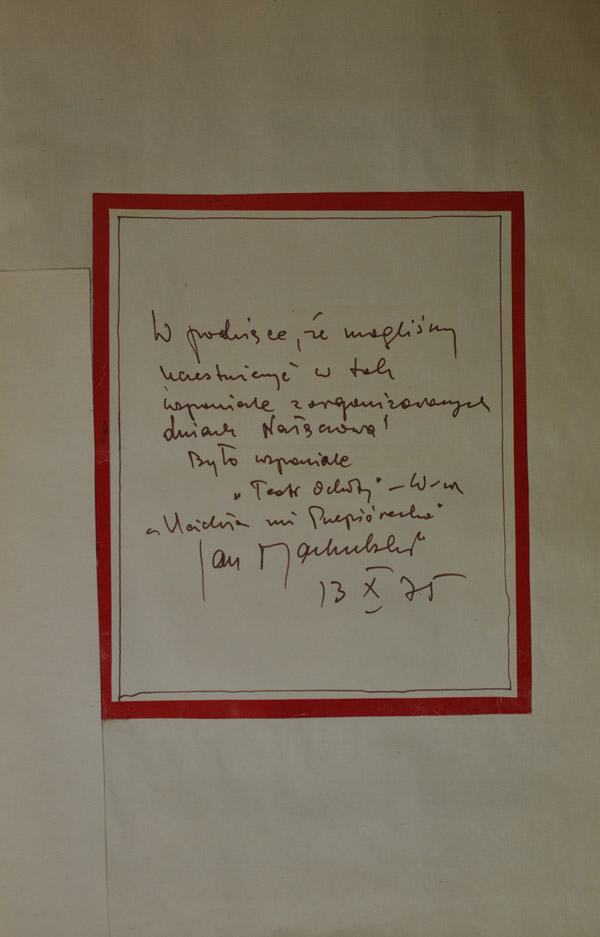 W podzięce, że mogliśmy
uczestniczyć w tak
wspaniale zorganizowanych
dniach Nałęczowa!
Było wspaniale
„Teatr Ochoty" – W-wa
Jan Machulski
13 X 75